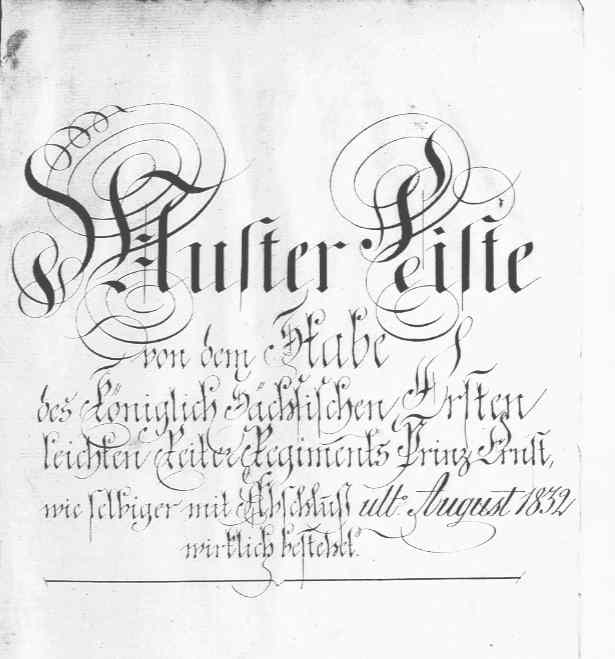 Muster Liste
von dem Stabe
des Königlich Sächsischen Ersten
leichten Reiter Regiments Prinz Ernst,
wie selbiger mit Abschluß ult: August 1832
wirklich bestehet.